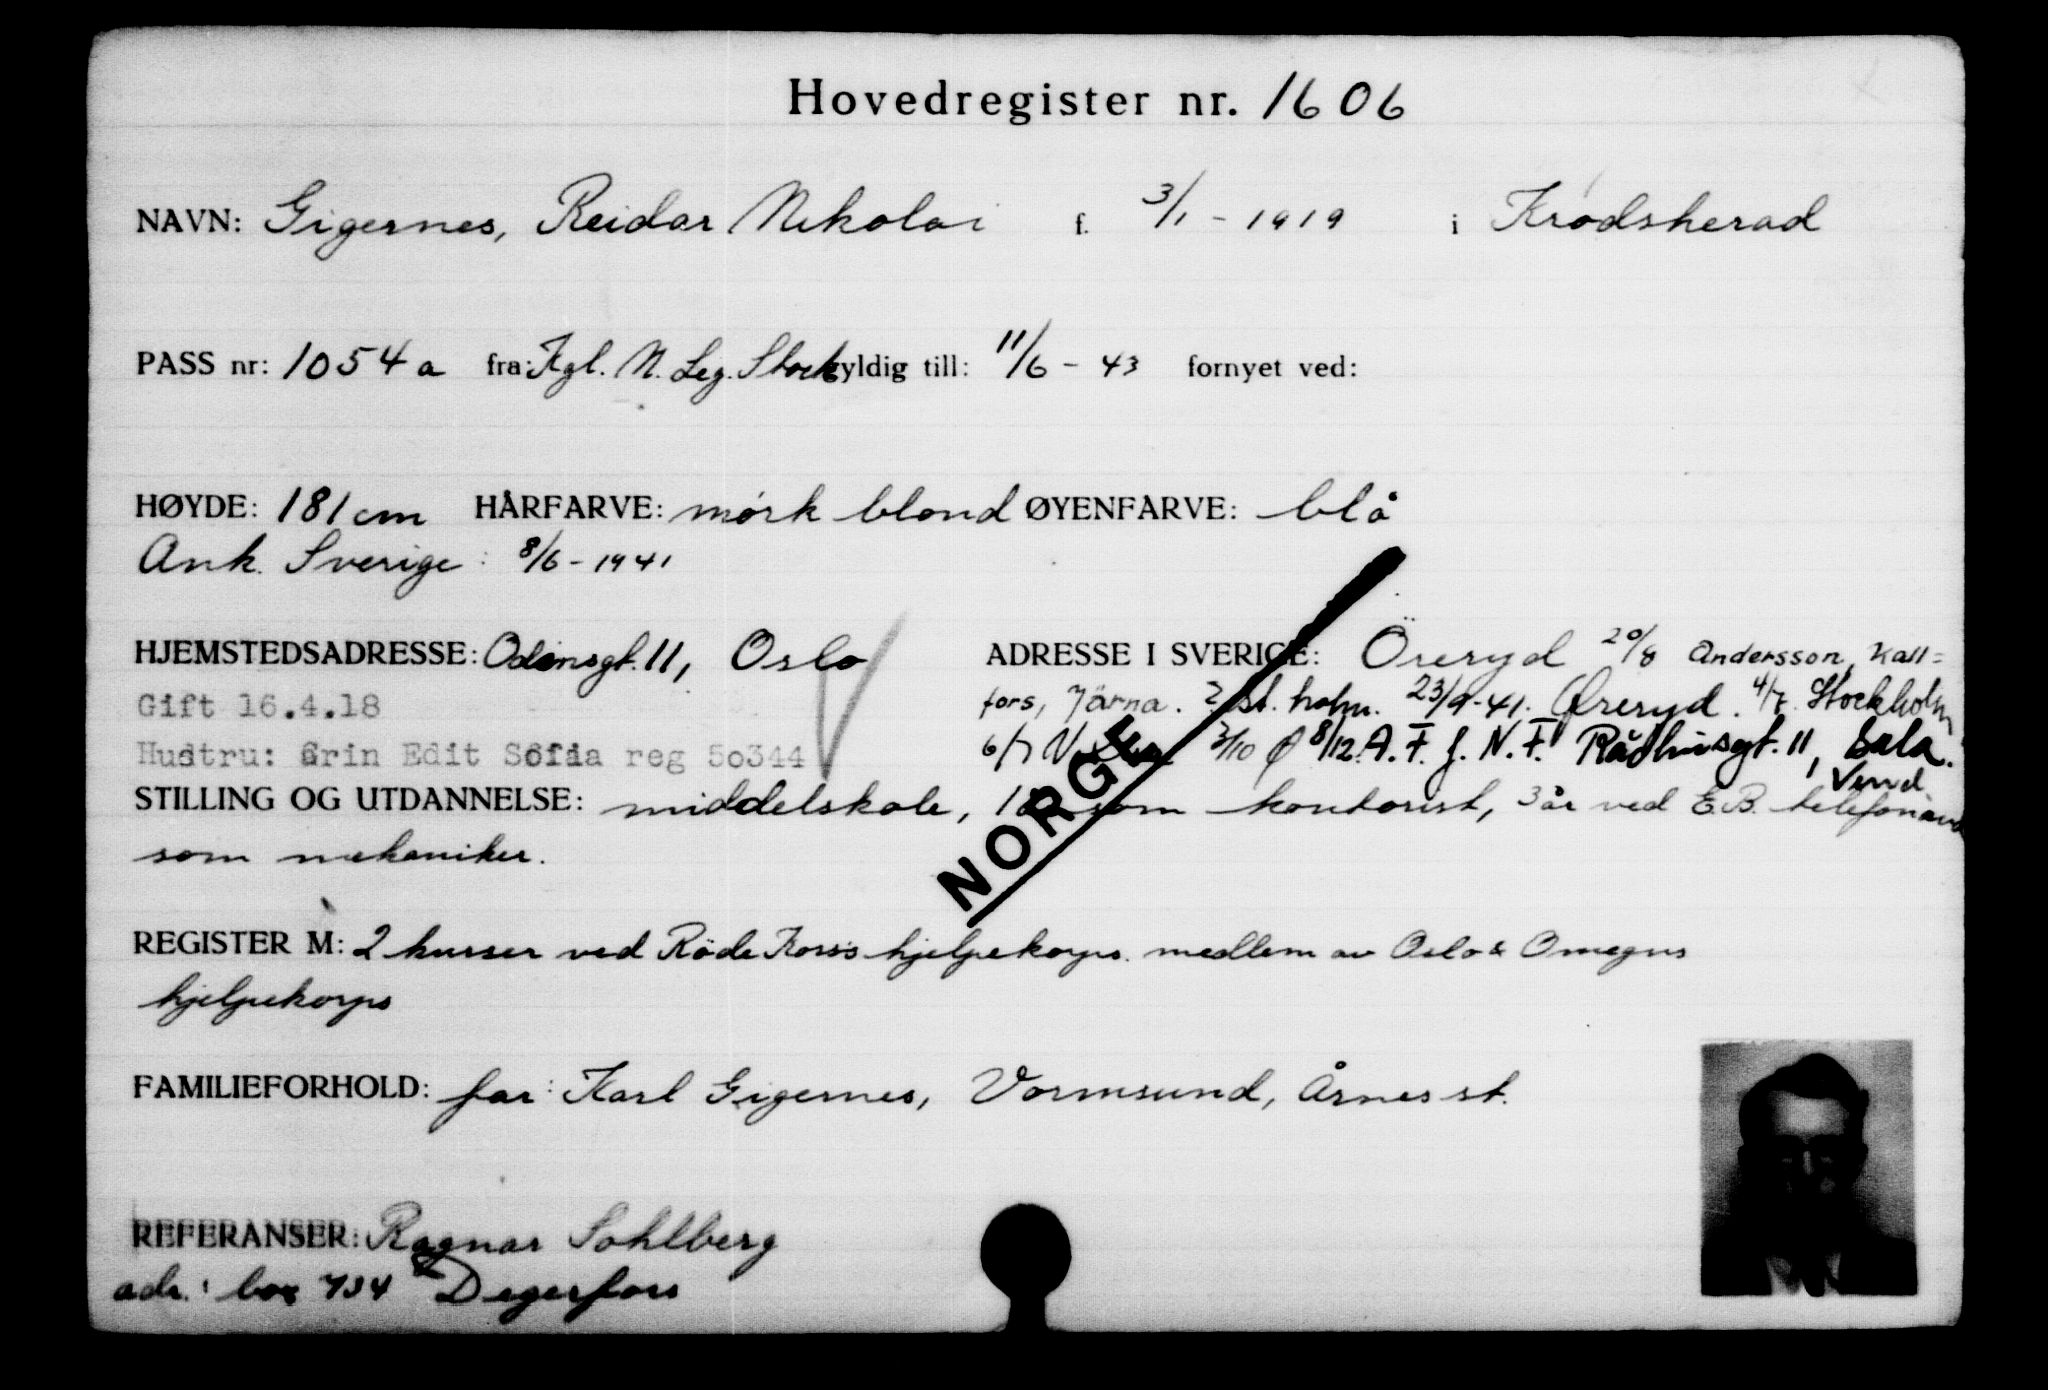 Hovedregister nr. 1606
NAVN: Gigernes, Reidar Nikolai f. 3/1 - 1919 i Krødsherad
PASS nr: 1054a fra: Kgl. N. Leg. Stock gyldig till: 11/6 - 43 fornyet ved:
HØYDE: 181 cm HÅRFARVE: mørk blond ØYENFARVE: blå
Ank. Sverige: 8/6 - 1941
HJEMSTEDSADRESSE: Odinsgt. 11, Oslo
Gift 16.4.18
Hustru: Grin Edit Sofia reg 50344
ADRESSE I SVERIGE: Öreryd 20/8 Andersson, Kall=
fors, Järna. ? St. holm. 23/9-41. Öreryd. 4/7. Stockholm
6/7 3/10 Ø 8/12. A.F. f. N.F. Rådhusgt. 11, Sala.
Vend
NORGE
STILLING OG UTDANNELSE: middelskole, som kontorist, 3 år ved E.B. telefonanl
som mekaniker.
REGISTER M: 2 kurser ved Röde Kors's hjelpekorps. medlem av Oslo & Omegns
hjelpekorps
FAMILIEFORHOLD: far: Karl Gigernes, Vormsund, Årnes st.
REFERANSER: Ragnar Sohlberg
adr: box 734 Degerfors